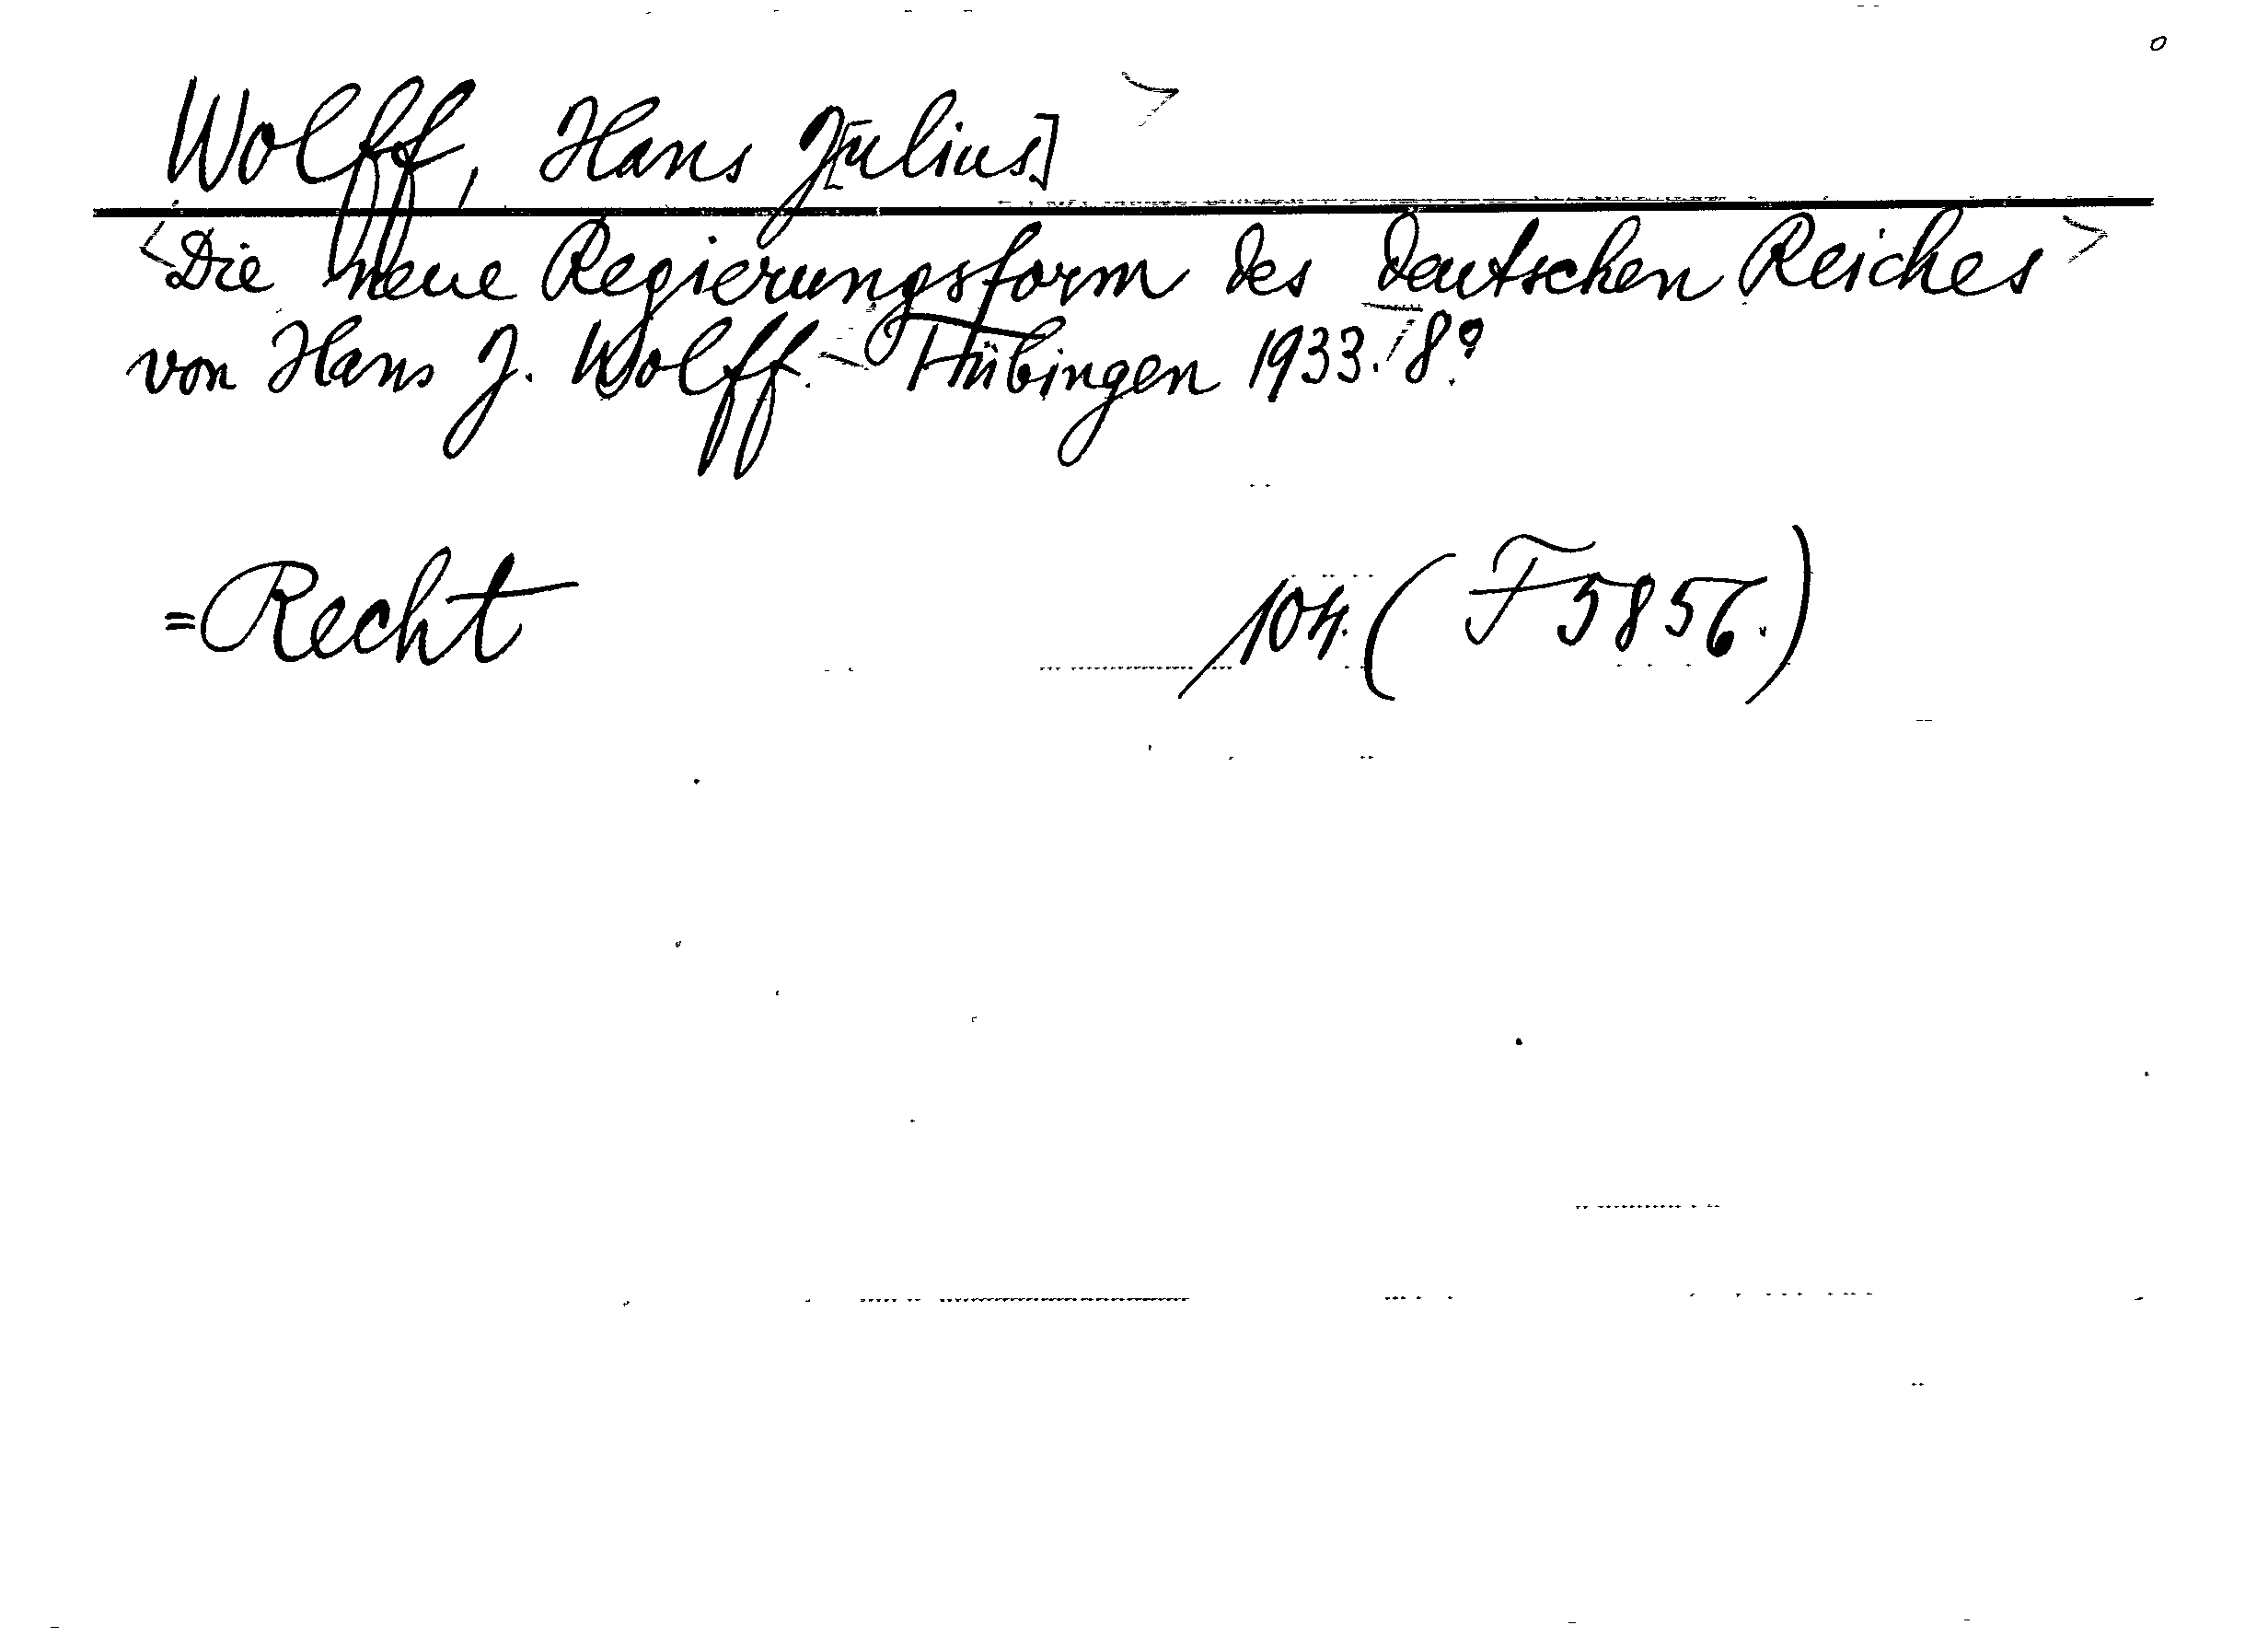 Wolff, Hans J[ulius]
Die neue Regierungsform des deutschen Reiches
von Hans J. Wolff. Tübingen 1933. 8°.
=Recht 104. (F 5856.)